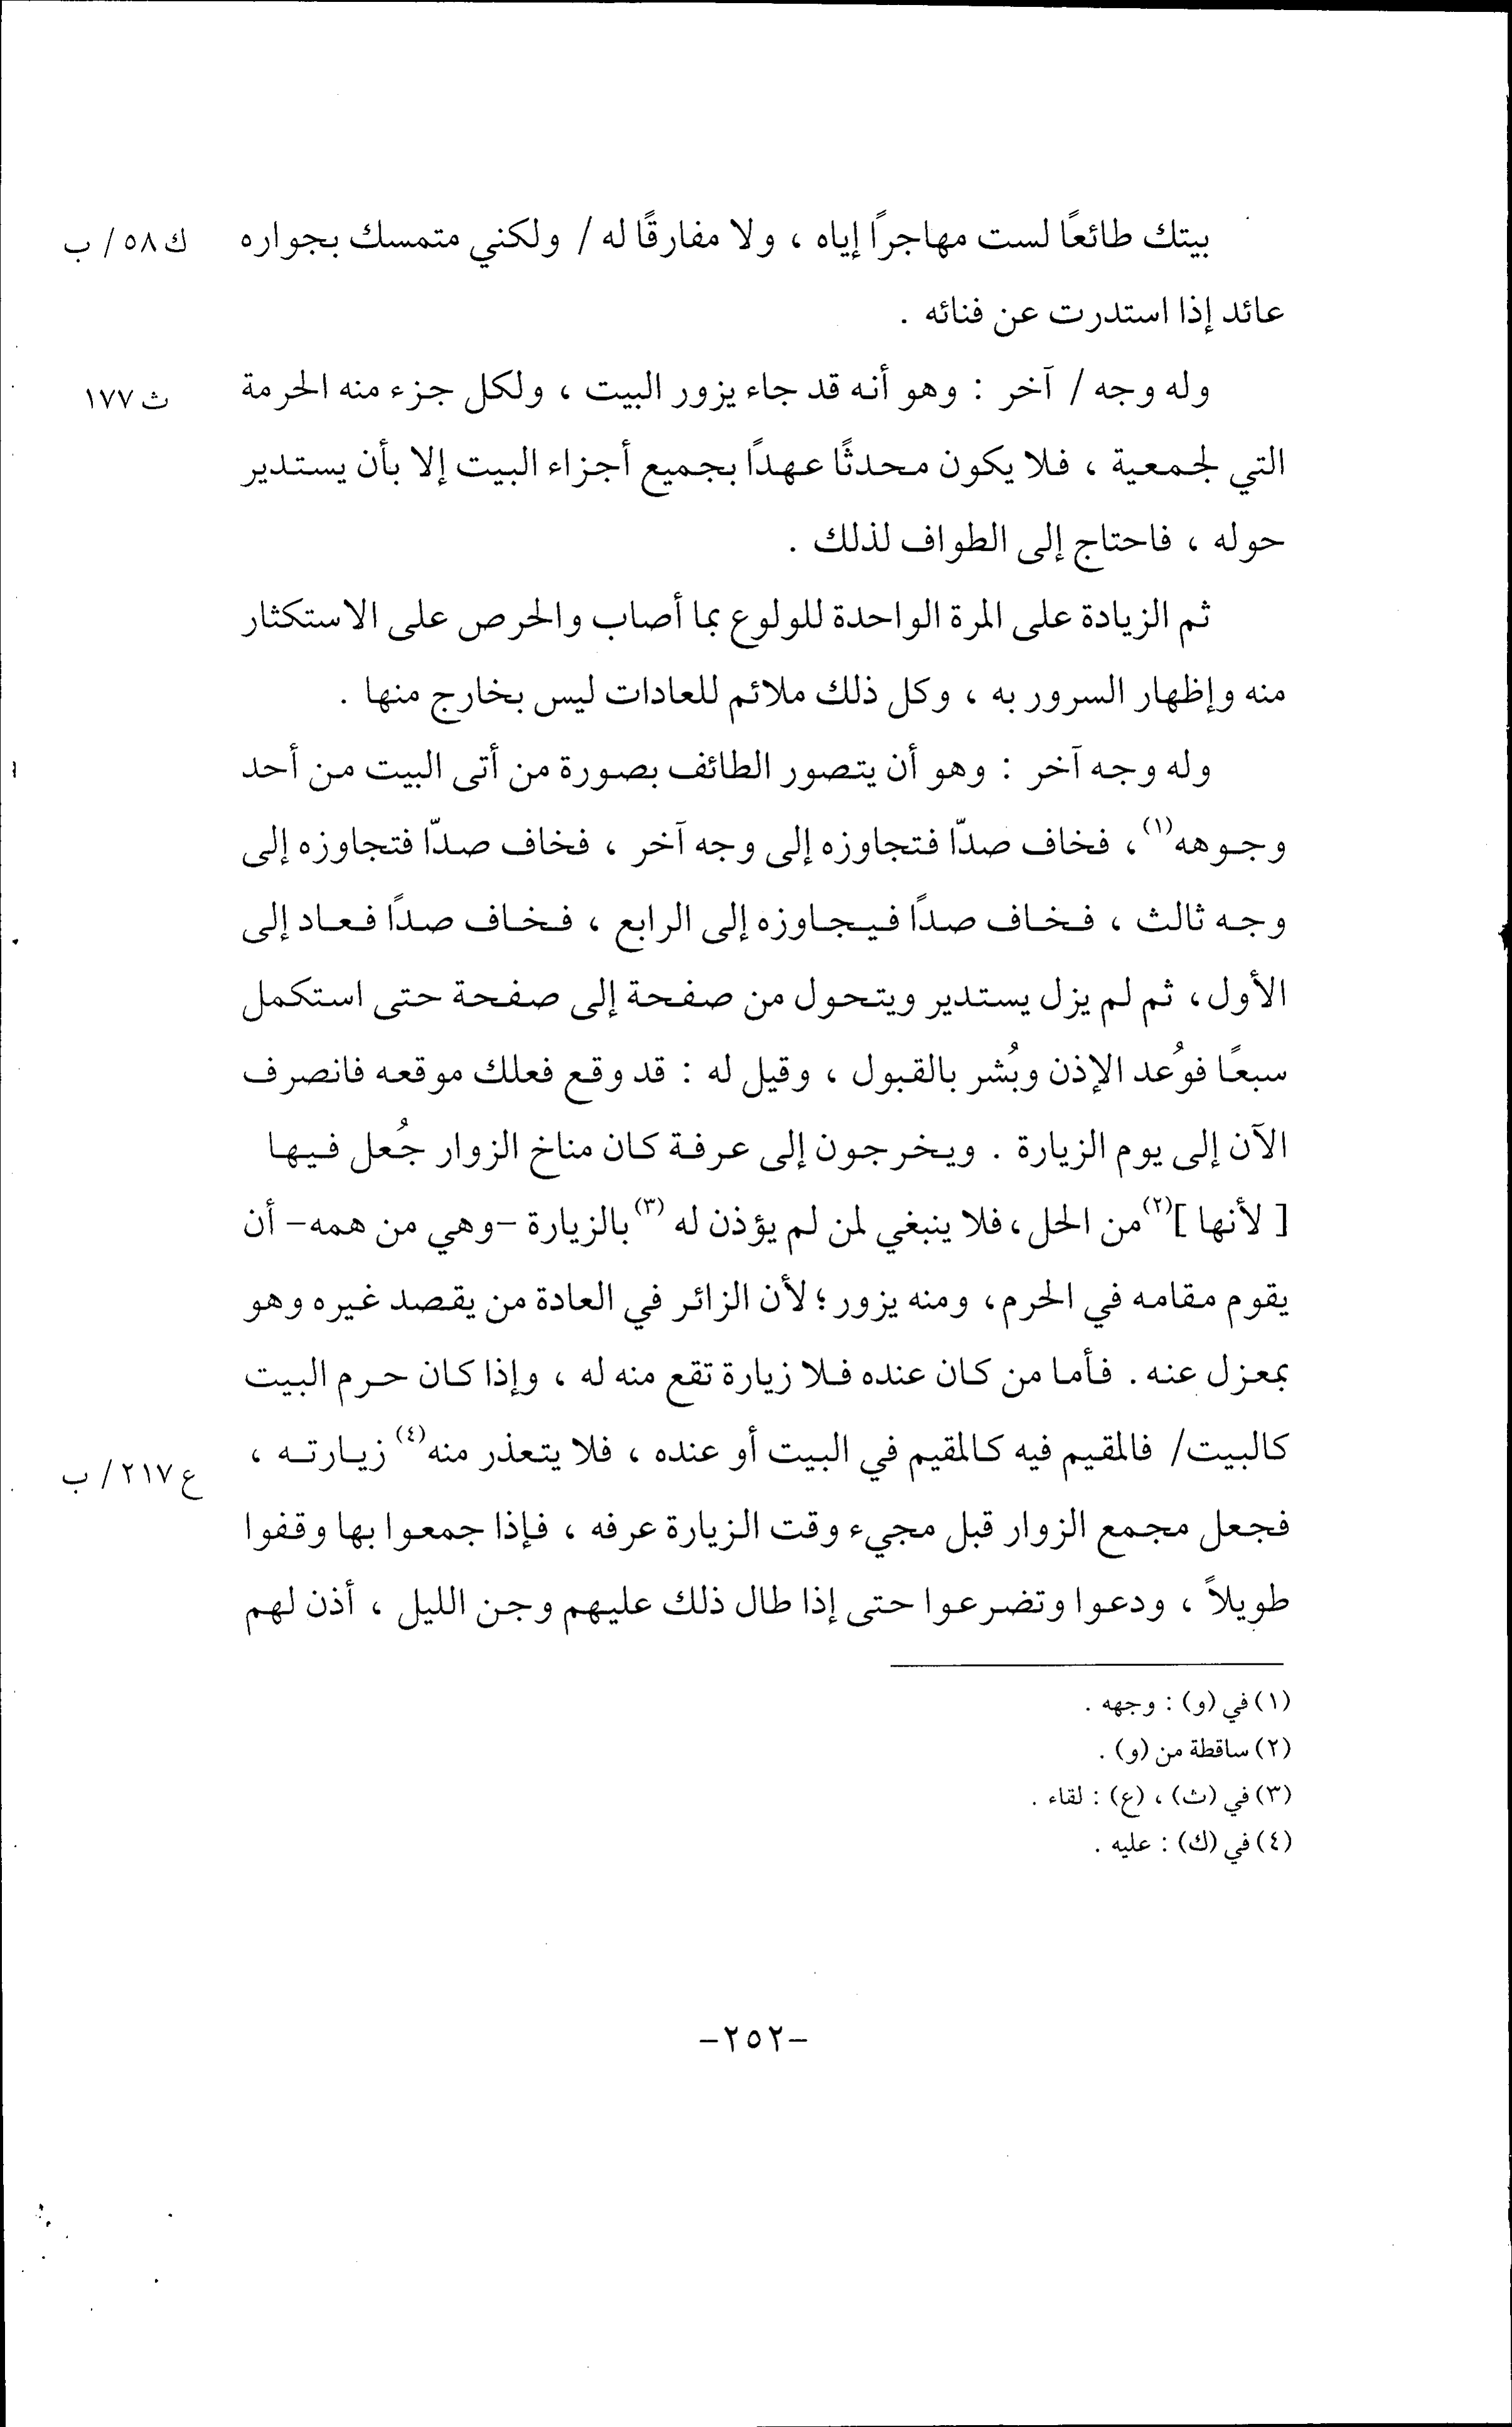 بيتك طائعًا لست مهاجرًا إياه ، ولا مفارقًا له / ولكني متمسك بجواره ك ٥٨ / ب
عائد إذا استدرت عن فنائه .
وله وجه / آخر : وهو أنه قد جاء يزور البيت ، ولكل جزء منه الحرمة ث ١٧٧
التي لجمعية ، فلا يكون محدثًا عهدًا بجميع أجزاء البيت إلا بأن يستدير
حوله ، فاحتاج إلى الطواف لذلك .
ثم الزيادة على المرة الواحدة للولوع بما أصاب والحرص على الاستكثار
منه وإظهار السرور به ، وكل ذلك ملائم للعادات ليس بخارج منها .
وله وجه آخر : وهو أن يتصور الطائف بصورة من أتى البيت من أحد
وجوهه(١) ، فخاف صدّا فتجاوزه إلى وجه آخر ، فخاف صدّا فتجاوزه إلى
وجه ثالث ، فخاف صدًا فيجاوزه إلى الرابع ، فخاف صدًا فعاد إلى
الأول، ثم لم يزل يستدير ويتحول من صفحة إلى صفحة حتى استكمل
سبعًا فوُعد الإذن وبُشر بالقبول ، وقيل له : قد وقع فعلك موقعه فانصرف
الآن إلى يوم الزيارة . ويخرجون إلى عرفة كان مناخ الزوار جُعل فيها
[ لأنها ](٢) من الحل ، فلا ينبغي لمن لم يؤذن له (٣) بالزيارة -وهي من همه- أن
يقوم مقامه في الحرم، ومنه يزور ؛ لأن الزائر في العادة من يقصد غيره وهو
بمعزل عنه . فأما من كان عنده فلا زيارة تقع منه له ، وإذا كان حرم البيت
كالبيت/ فالمقيم فيه كالمقيم في البيت أو عنده ، فلا يتعذر منه(٤) زيارته ، ع ٢١٧ / ب
فجعل مجمع الزوار قبل مجيء وقت الزيارة عرفه ، فإذا جمعوا بها وقفوا
طويلاً ، ودعوا وتضرعوا حتى إذا طال ذلك عليهم وجن الليل ، أذن لهم
(١) في (و) : وجهه .
(٢) ساقطة من (و) .
(٣) في (ث) ، (ع) : لقاء .
(٤) في (ك) : عليه .
-٢٥٢-